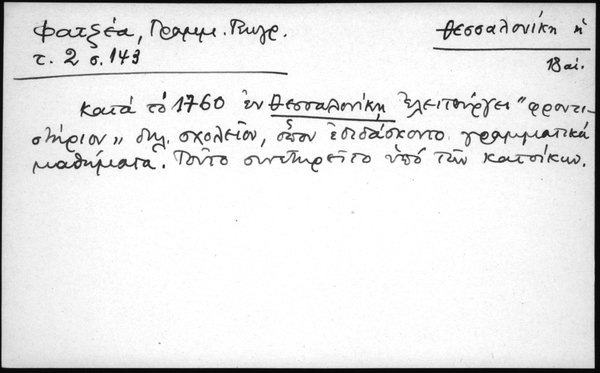 Φατζέα, Γραμμ. Γεωγρ.
Θεσσαλονίκη ἡ
τ. 2 σ. 143
18 αἰ.
κατὰ τὸ 1760 ἐν Θεσσαλονίκῃ ἐλειτούργει "φροντι-
στήριον" δηλ. σχολεῖον, ὅπου ἐδιδάσκοντο γραμματικὰ
μαθήματα. Τοῦτο συνετηρεῖτο ὑπὸ τῶν κατοίκων.